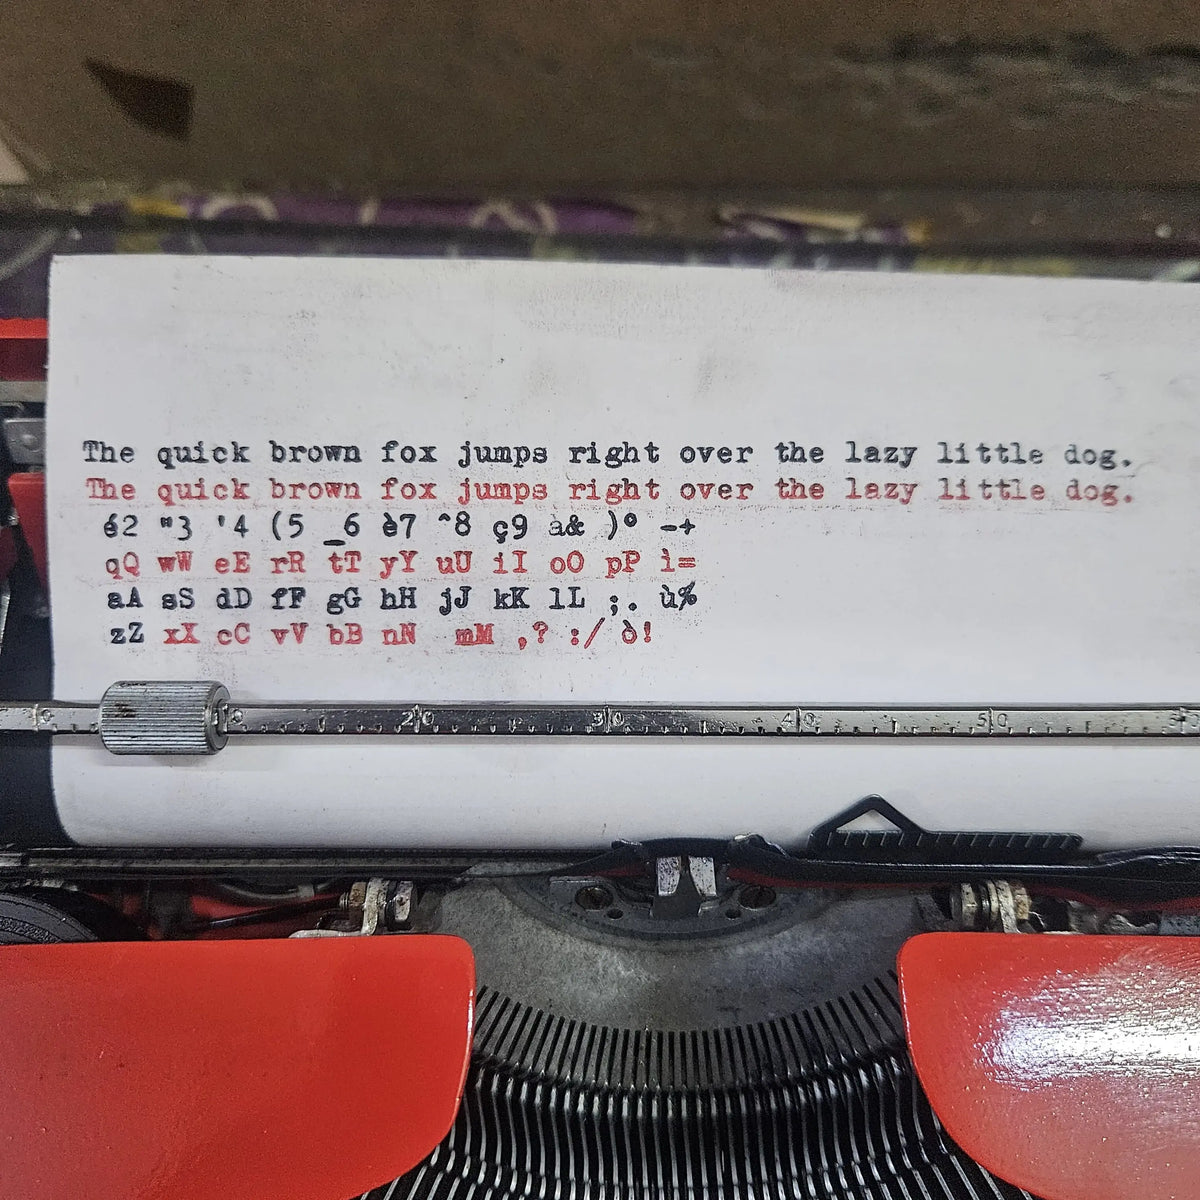 The quick brown fox jumps right over the lazy little dog.
The quick brown fox jumps right over the lazy little dog.
é2 "3 '4 (5 _6 è7 ^8 ç9 à& )° -+
qQ wW eE rR tT yY uU iI oO pP ì=
aA sS dD fF gG hH jJ kK lL ;. ù%
zZ xX cC vV bB nN mM ,? :/ ò!
0 10 20 30 40 50